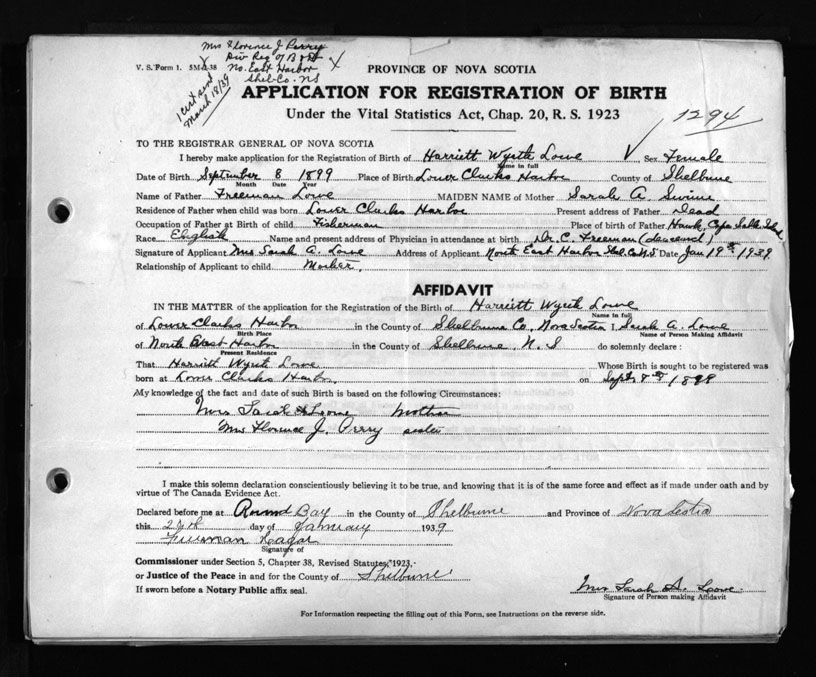 Mrs Florence J Perry
Div Reg of B & D
V. S. Form 1. 5M-38 No. East Harbor X
Shel-Co- NS
1 cert sent
March 18/39
PROVINCE OF NOVA SCOTIA
APPLICATION FOR REGISTRATION OF BIRTH
Under the Vital Statistics Act, Chap. 20, R. S. 1923
1294
TO THE REGISTRAR GENERAL OF NOVA SCOTIA
I hereby make application for the Registration of Birth of Harriett Wyrth Lowe Sex Female
Name in full
Date of Birth September 8 1899 Place of Birth Lower Clarks Harbor County of Shelburne
Month Date Year
Name of Father Freeman Lowe MAIDEN NAME of Mother Sarah A. Swim
Residence of Father when child was born Lower Clarks Harbor Present address of Father Dead
Occupation of Father at Birth of child Fisherman Place of birth of Father Hawk, Cape Sable Island
Race English Name and present address of Physician in attendance at birth Dr. C. Freeman (deceased)
Signature of Applicant Mrs Sarah A. Lowe Address of Applicant North East Harbor Shel. Co. N.S. Date Jan 19th 1939
Relationship of Applicant to child Mother.
AFFIDAVIT
IN THE MATTER of the application for the Registration of the Birth of Harriett Wyrth Lowe
Name in full
of Lower Clarks Harbor in the County of Shelburne Co, Nova Scotia I, Sarah A. Lowe
Birth Place Name of Person Making Affidavit
of North East Harbor in the County of Shelburne, N. S do solemnly declare :
Present Residence
That Harriett Wyrth Lowe Whose Birth is sought to be registered was
born at Lower Clarks Harbor, on Sept 8th
My knowledge of the fact and date of such Birth is based on the following Circumstances:
Mrs Sarah A Lowe Mother
Mrs Florence J. Perry sister
I make this solemn declaration conscientiously believing it to be true, and knowing that it is of the same force and effect as if made under oath and by
virtue of The Canada Evidence Act.
Declared before me at Round Bay in the County of Shelburne and Province of Nova Scotia
this day of January 1939
Freeman
Signature of
Commissioner under Section 5, Chapter 38, Revised Statutes, 1923,
or Justice of the Peace in and for the County of Shelburne
If sworn before a Notary Public affix seal.
Mrs Sarah A. Lowe
Signature of Person making Affidavit
For Information respecting the filling out of this Form, see Instructions on the reverse side.